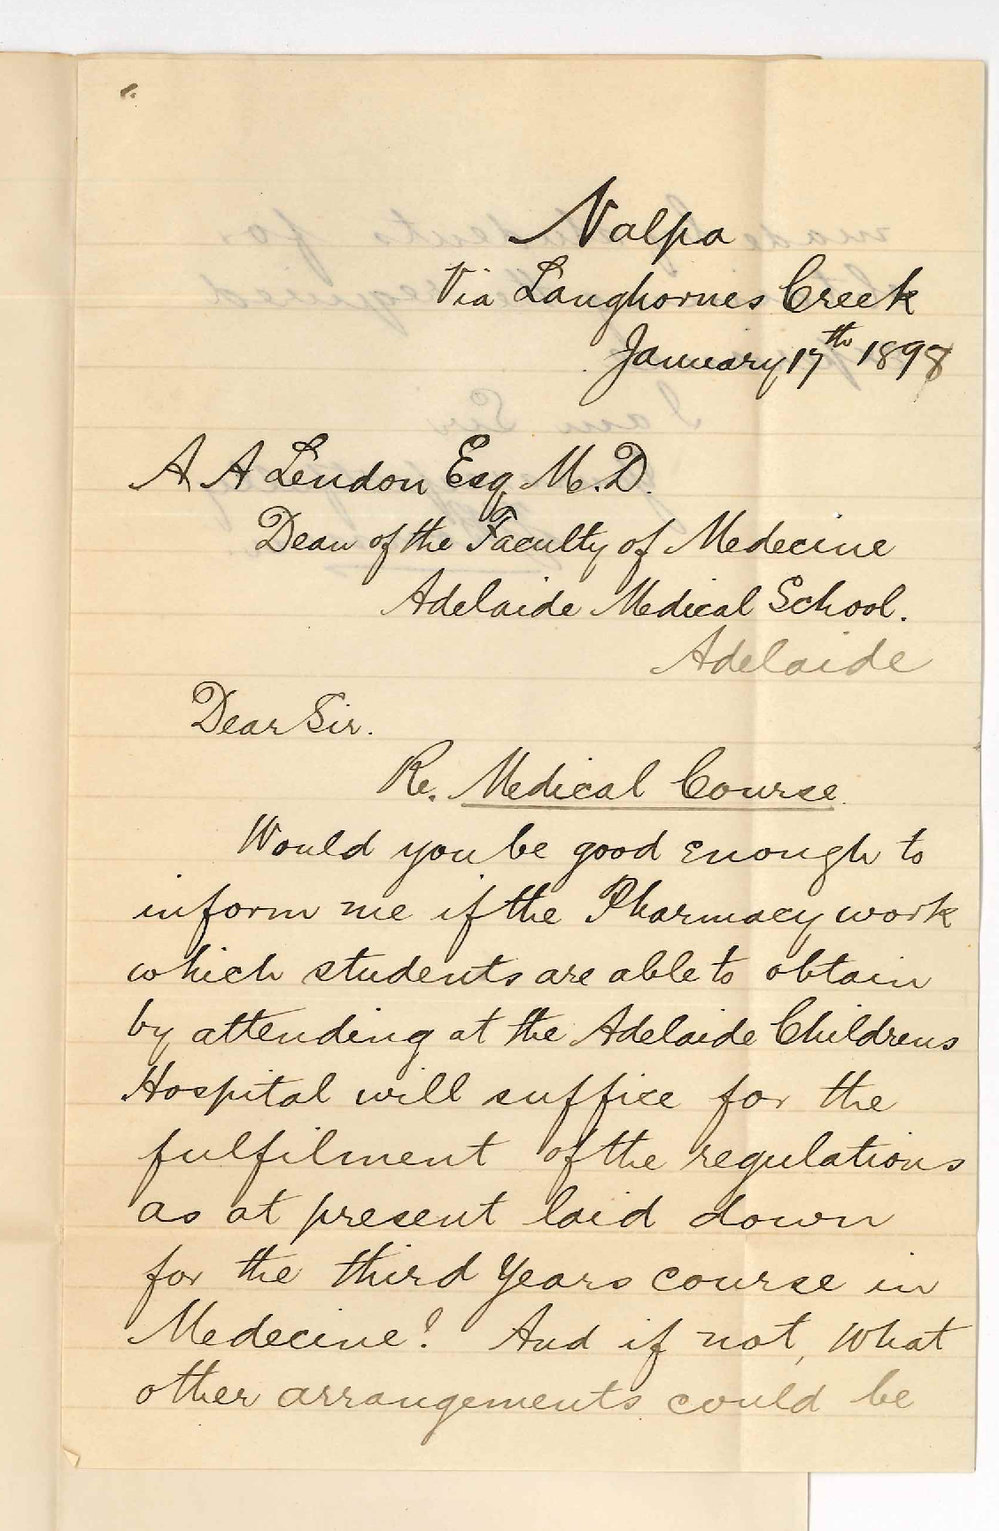 Nalpa
Via Langhornes Creek
January 17th 1898
A A Lendon Esq. M.D.
Dean of the Faculty of Medecine
Adelaide Medical School.
Adelaide
Dear Sir.
Re. Medical Course.
Would you be good enough to
inform me if the Pharmacy work
which students are able to obtain
by attending at the Adelaide Childrens
Hospital will suffice for the
fulfilment of the regulations
as at present laid down
for the third Years course in
Medecine? And if not, What
other arrangements could be